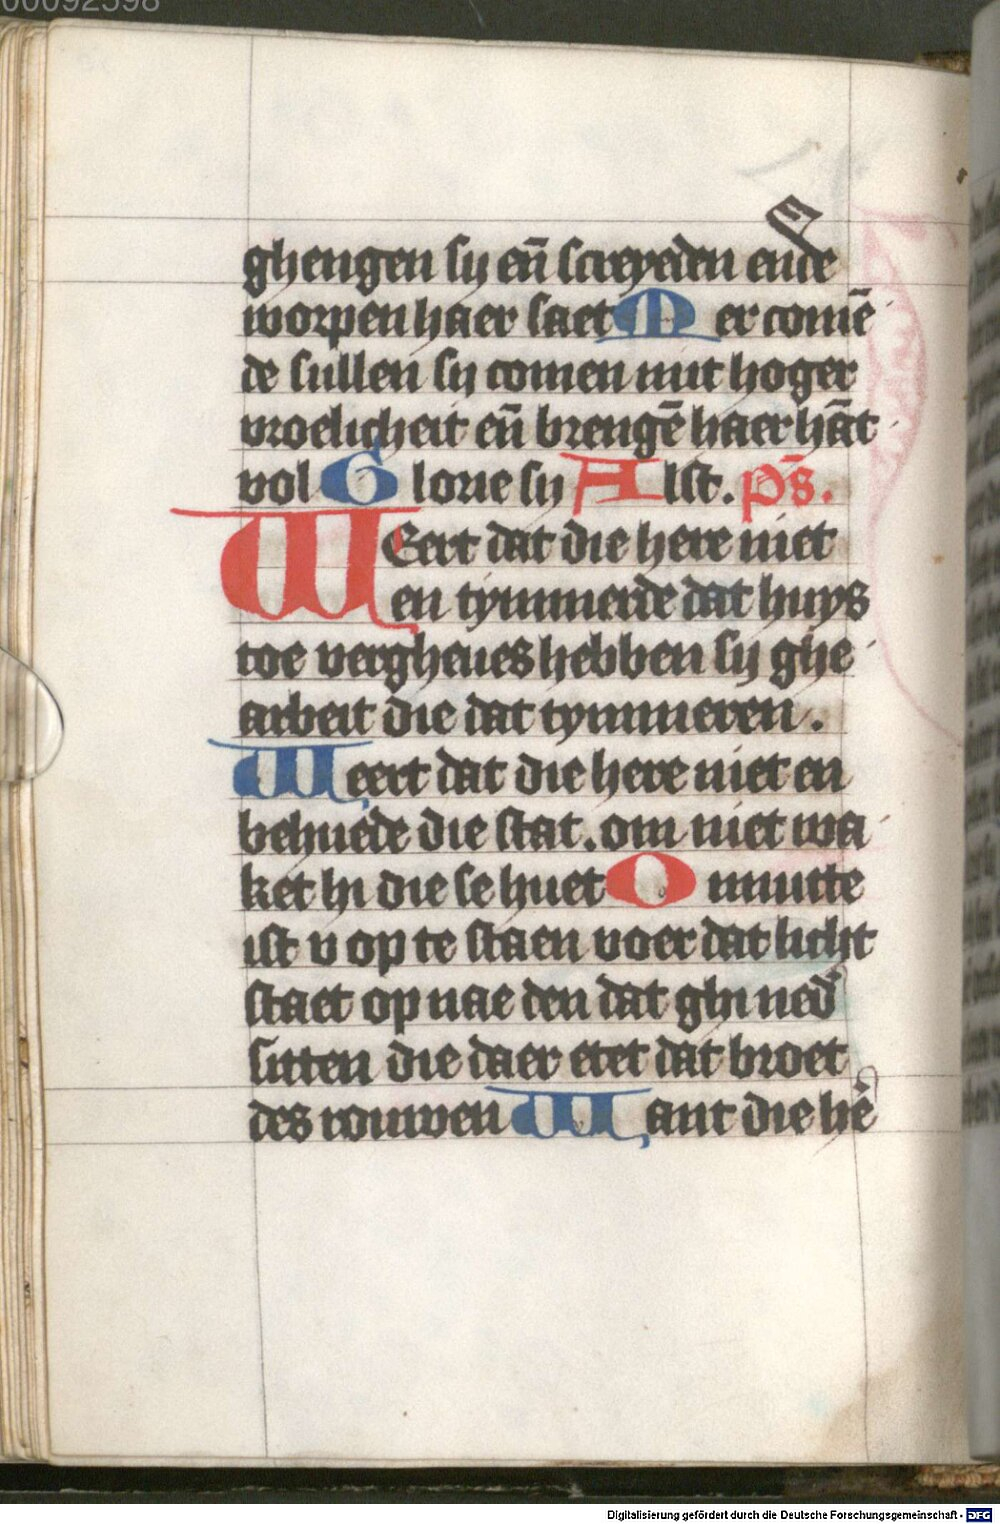 00092598
ghengen sy en̄ screyeden ende
worpen haer saet Mer comē
de sullen sy comen mit hoger
vroelicheit en̄ brengē haer hāt
vol Glorie sy Alst. ps̄.
WEert dat die here niet
en tymmerde dat huys
toe vergheues hebben sy ghe
arbeit die dat tymmeren.
Weert dat die here niet en
behuede die stat. om niet wa
ket hi die se huet Onnutte
ist v op te staen voer dat licht
staet op nae den dat ghi ned̄
sitten die daer etet dat broet
des rouwen Want die hē
Digitalisierung gefördert durch die Deutsche Forschungsgemeinschaft - DFG